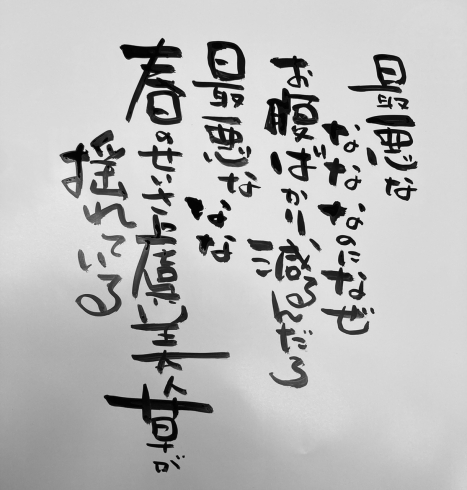 最悪な
なななのになぜ
お腹ばかり減るんだろ
最悪ななな
春のせいさ虞美人草が
揺れている